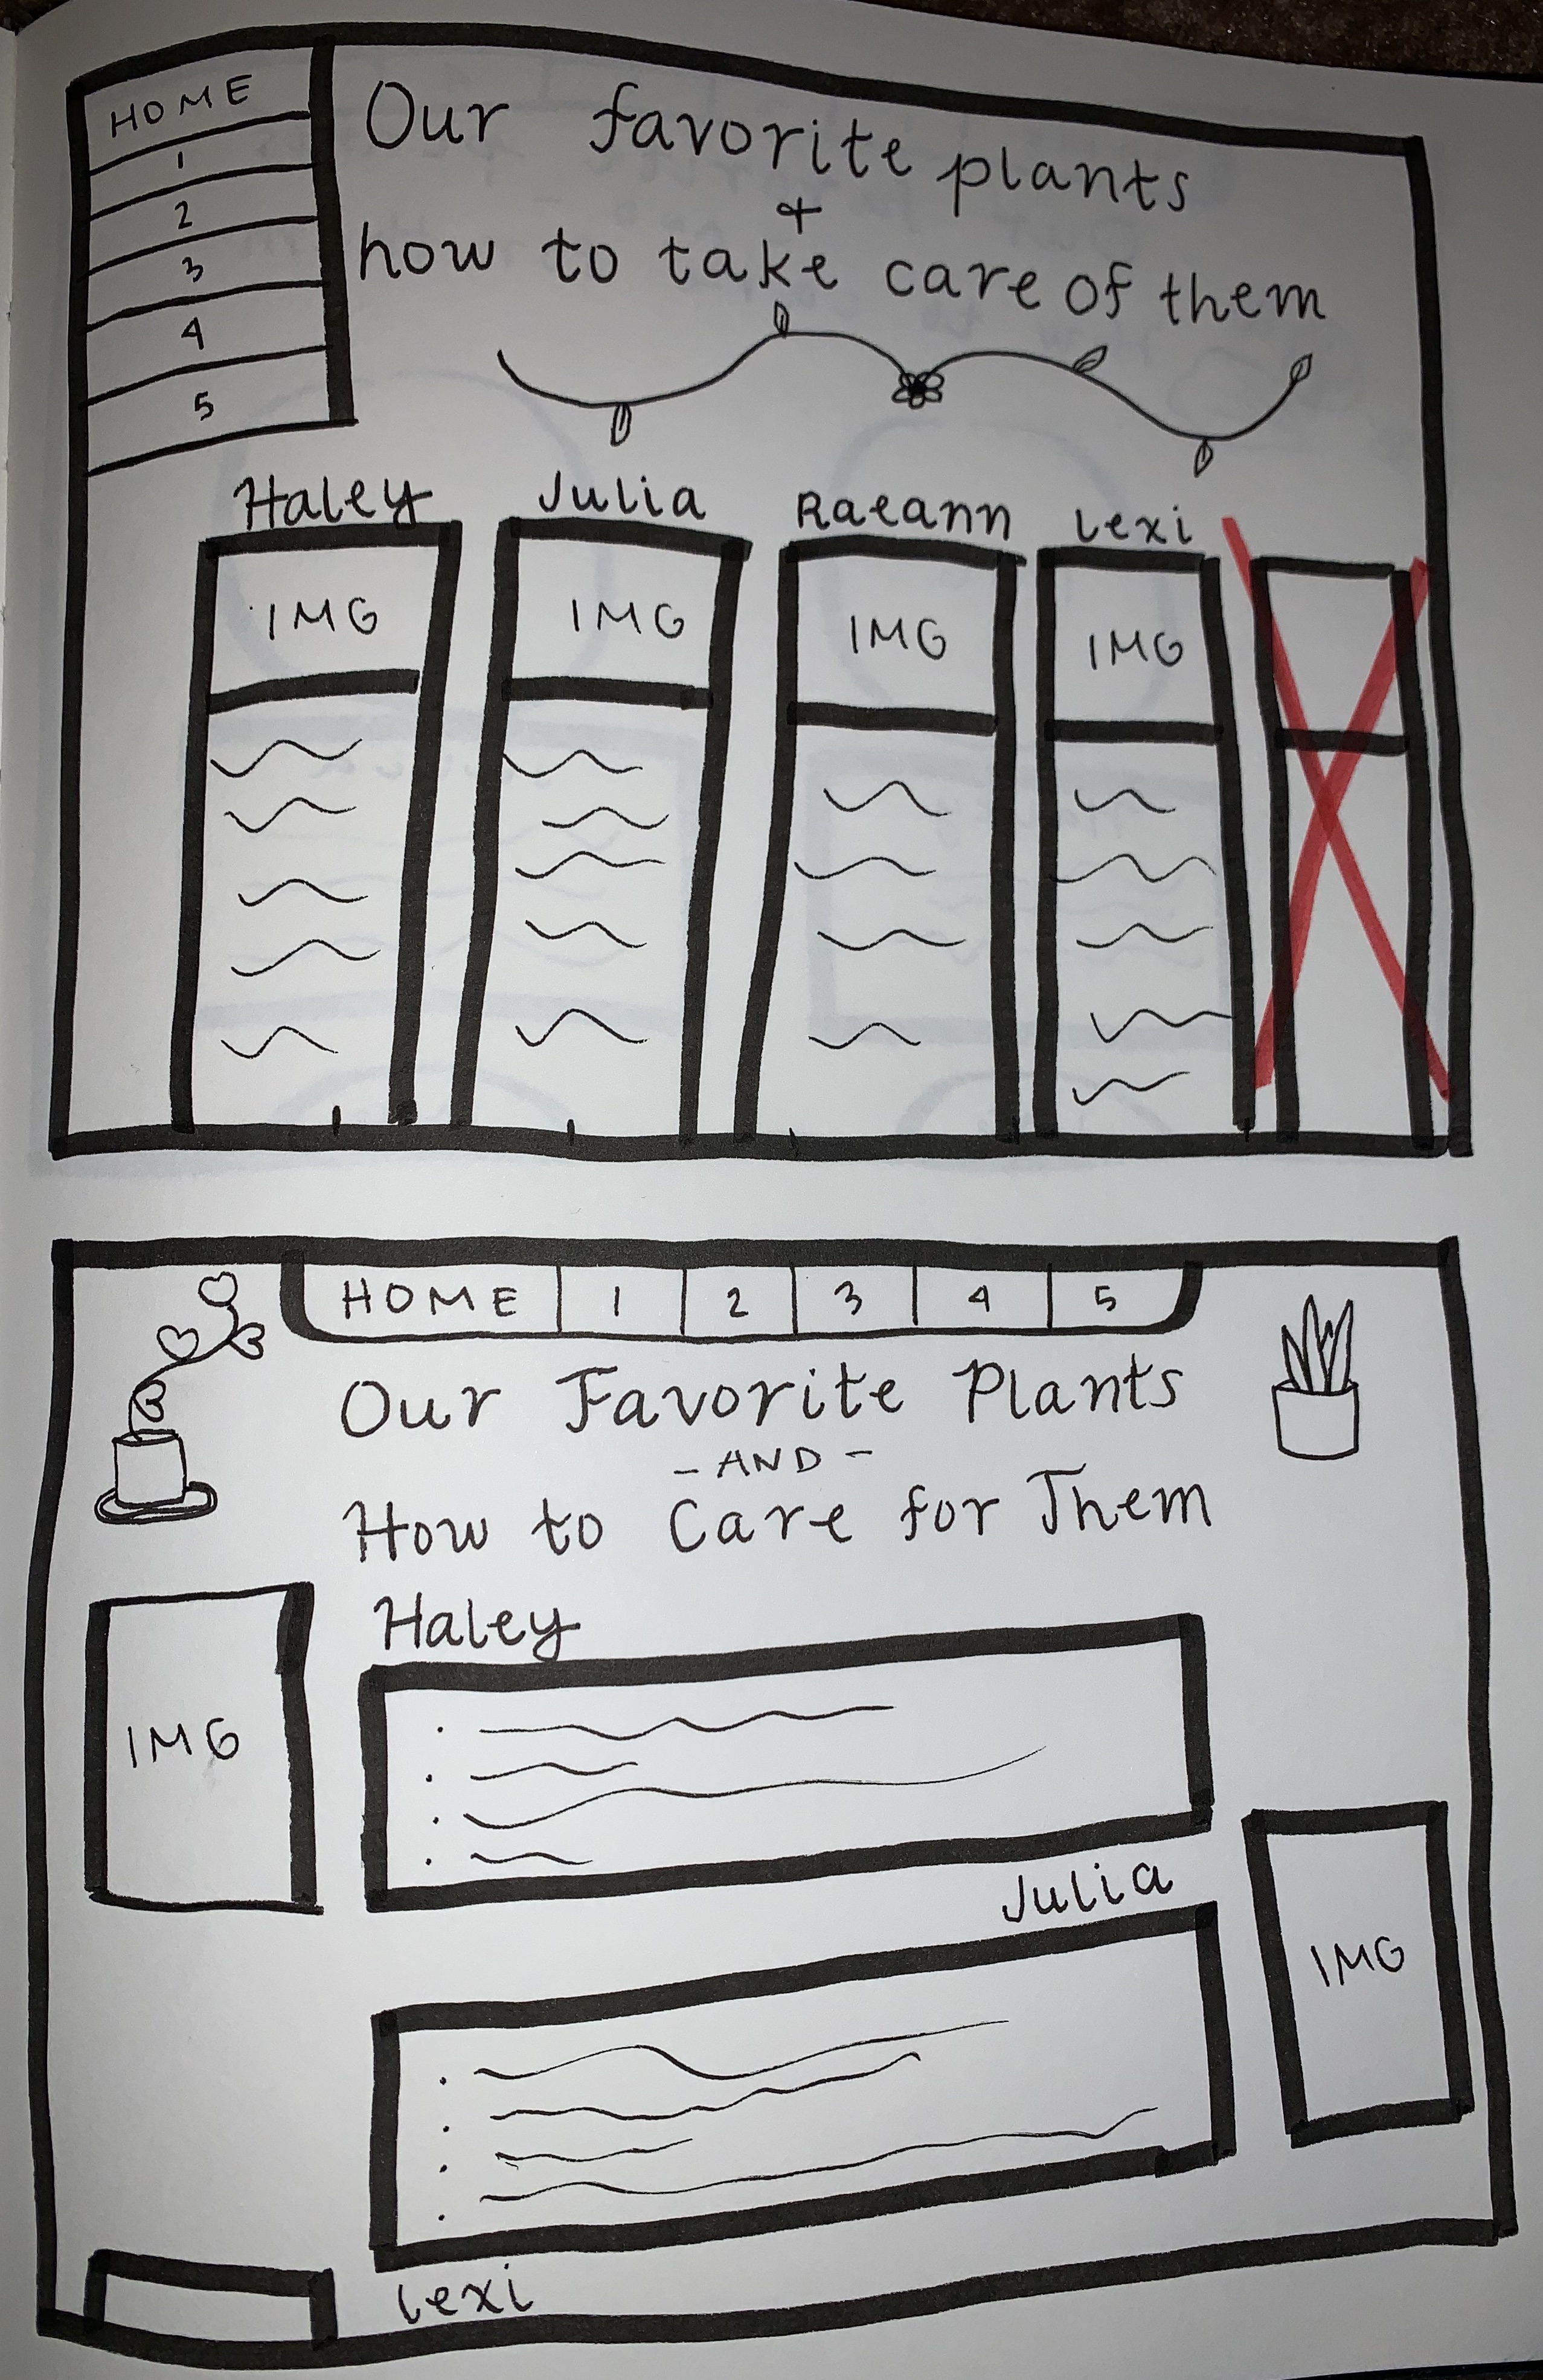 HOME
1
2
3
4
5
Our favorite plants
+
how to take care of them
Haley Julia Raeann Lexi
IMG IMG IMG IMG
HOME 1 2 3 4 5
Our Favorite Plants
- AND -
How to Care for Them
Haley
IMG
Julia
IMG
Lexi